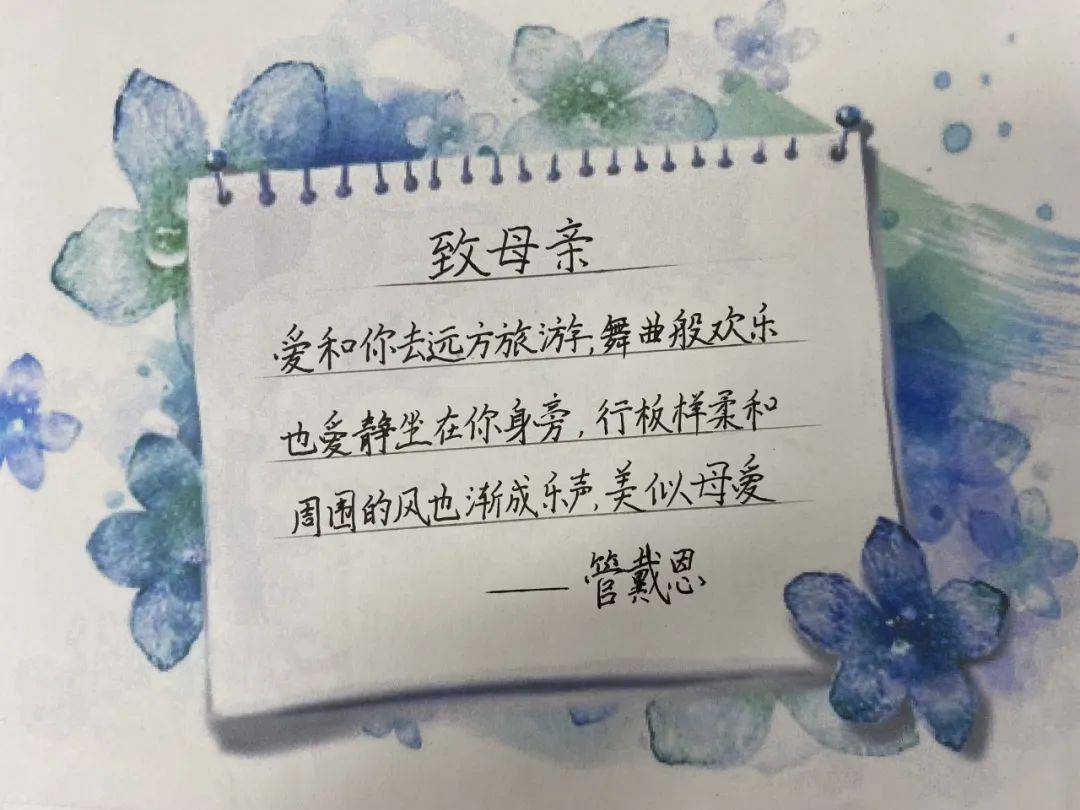 致母亲
爱和你去远方旅游,舞曲般欢乐
也爱静坐在你身旁,行板样柔和
周围的风也渐成乐声,美似母爱
——管戴恩